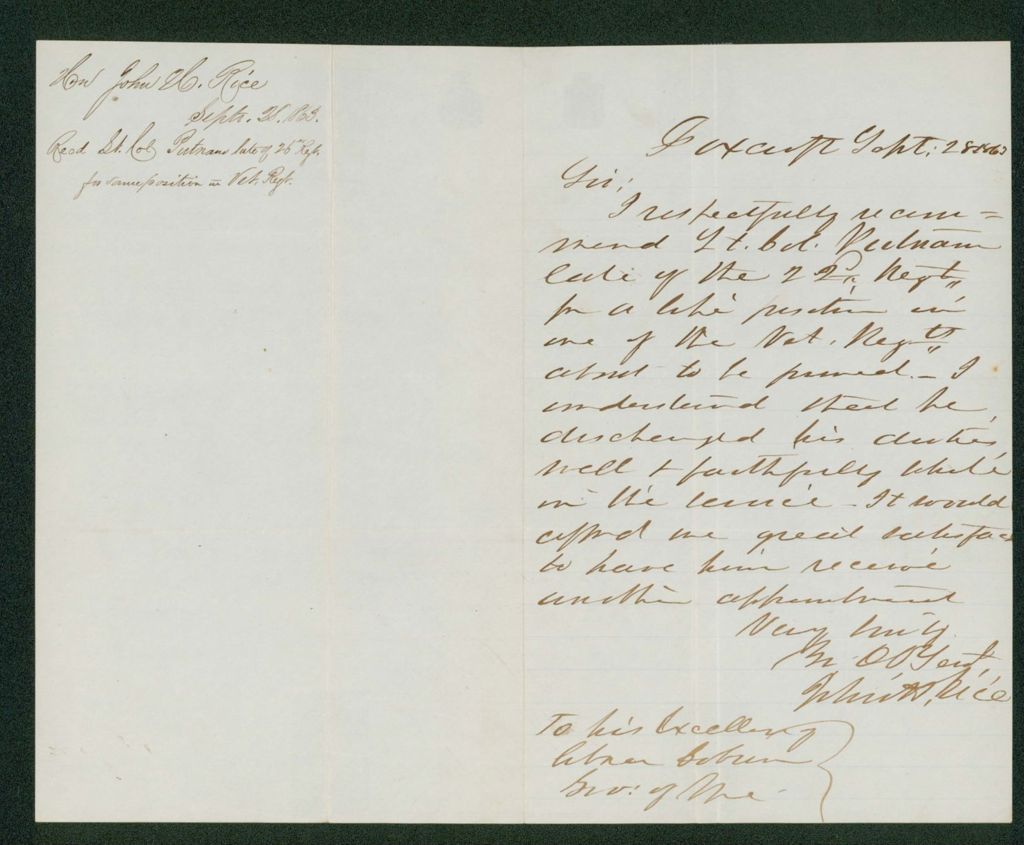 Hn John H. Rice
Septr. 28. 1863.
Recd Lt. Col Putnam late of 26" Regt.
for same position in Vet. Regt.
Foxcroft Sept: 28 1863
Sir;
I respectfully recom=
mend Lt. Col. Putnam
late of the 22d Regt
for a like position in
one of the Vet. Regts
about to be formed. - I
understand that he
discharged his duties
well & faithfully while
in the service - It would
afford me great satisfac
to have him receive
another appointment
Very truly
Yr Ob Servt,
John H. Rice
To his Excellency
Abner Coburn
Gov: of Me.